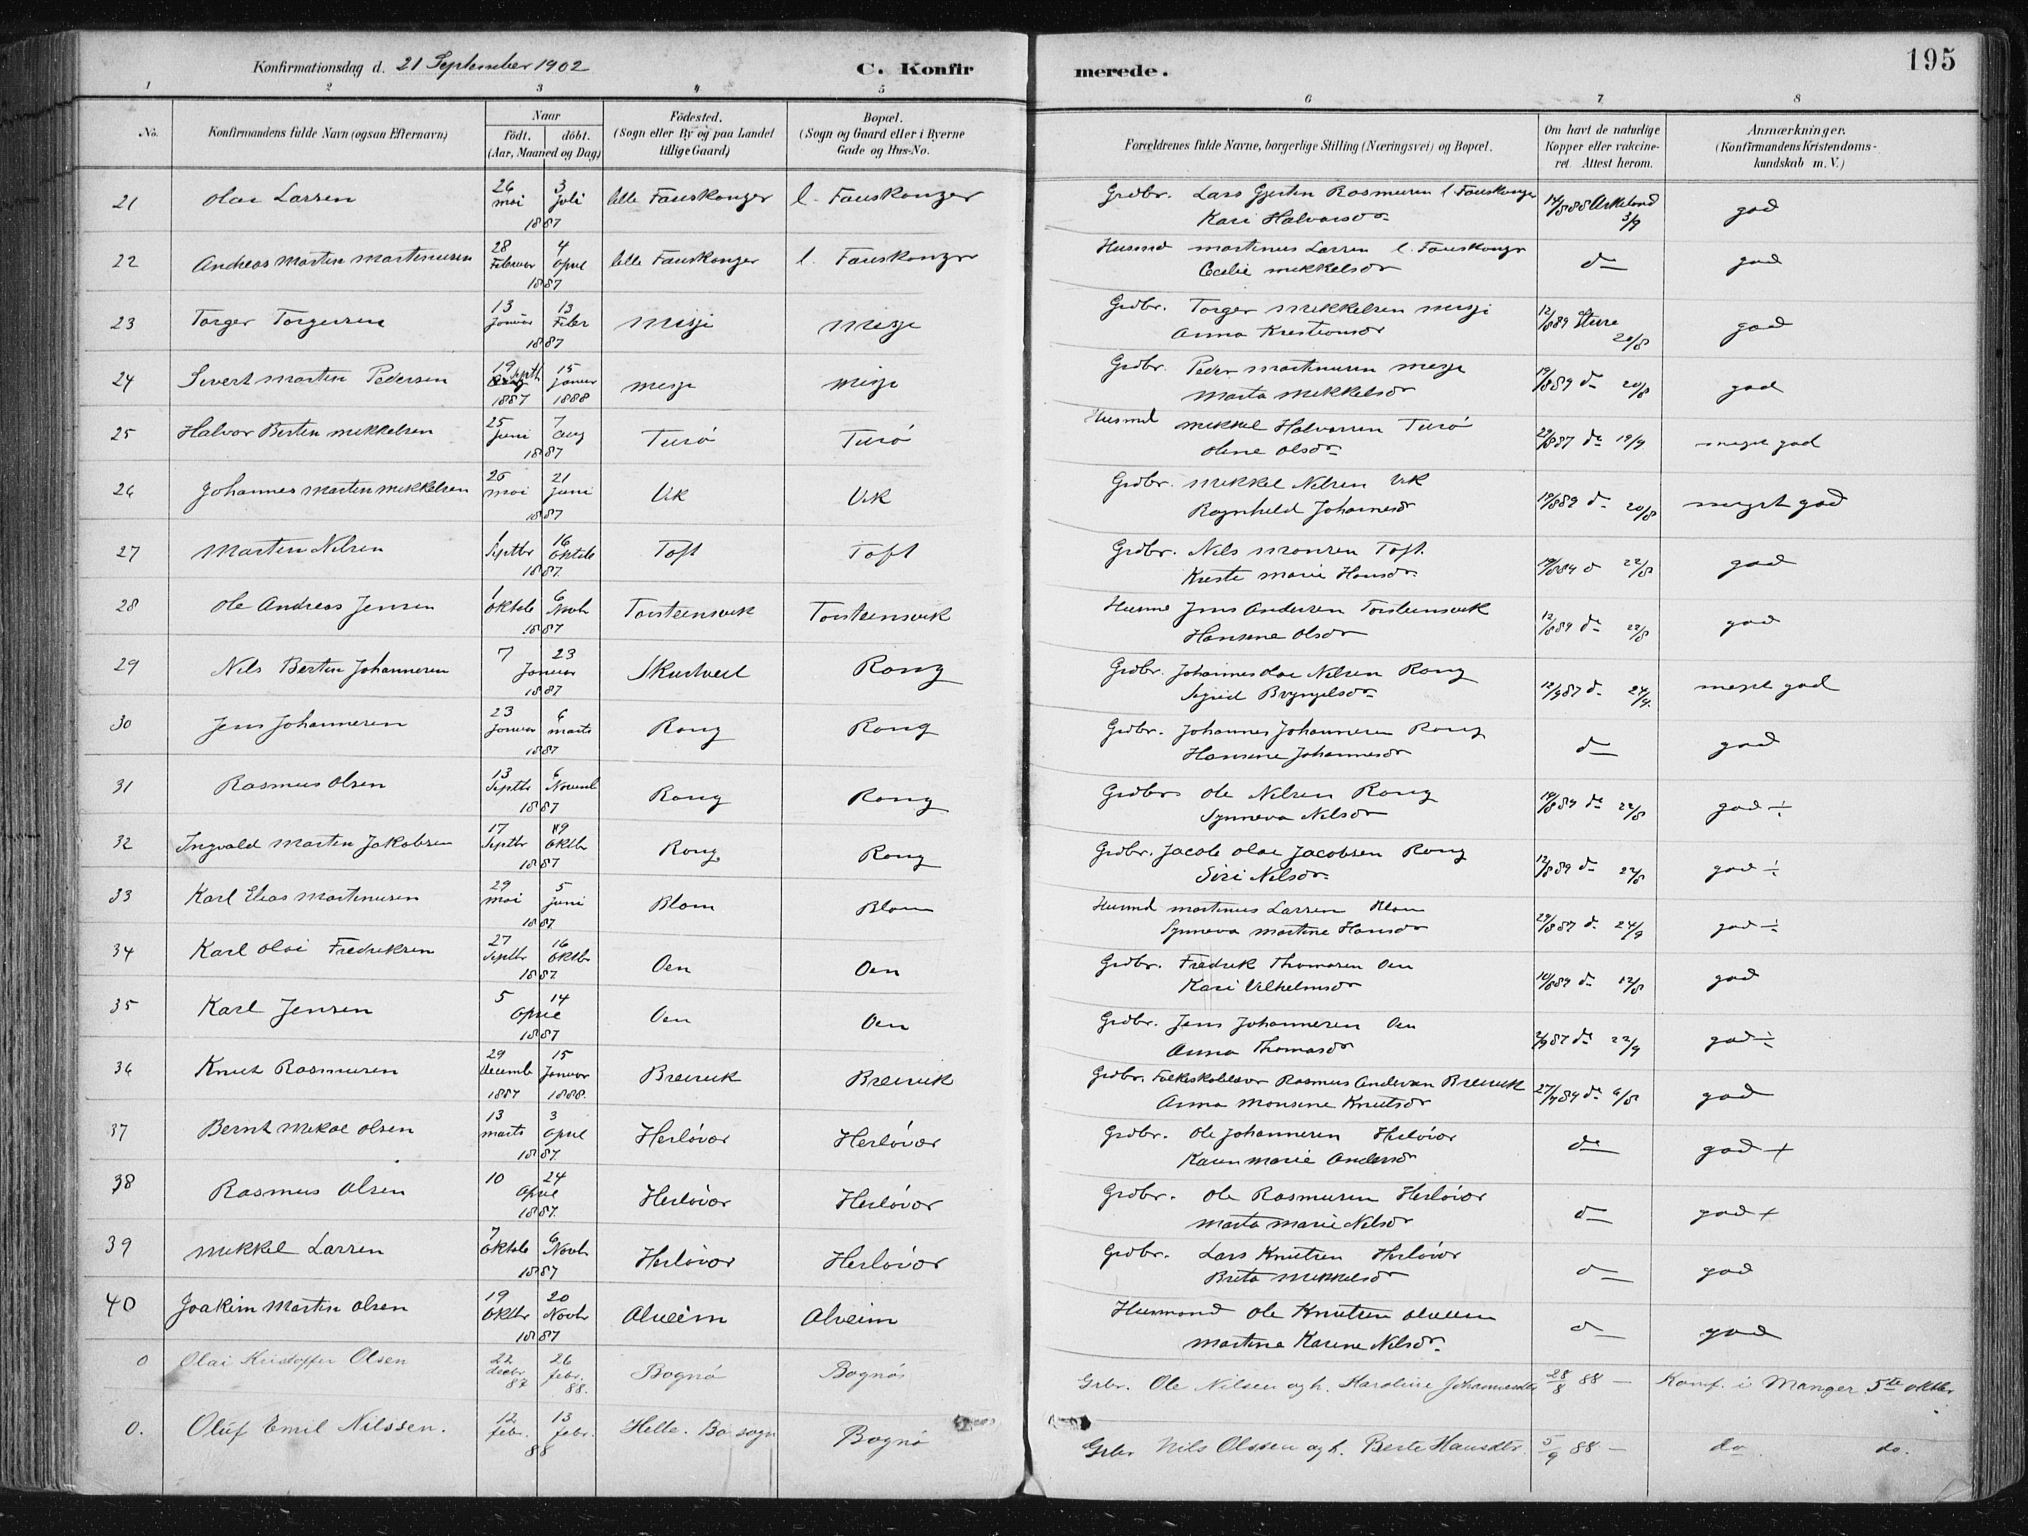 Konfirmationsdag d. 21 September 1902 C. Konfirmerede. 195
1 2 3 4 5 6 7 8
No. Konfirmandens fulde Navn (ogsaa Efternavn) Naar födt. döbt. (Aar, Maaned og Dag) Födested. (Sogn eller By og paa Landet tillige Gaard) Bopæl. (Sogn og Gaard eller i Byerne Gade og Hus-No. Forældrenes fulde Navne, borgerlige Stilling (Næringsvei) og Bopæl. Om havt de naturlige Kopper eller vakcineret. Attest herom. Anmærkninger. (Konfirmandens Kristendomskundskab m. V.)
21 Olai Larsen 26 mai 3 Juli 1887 lille Fauskanger l. Fauskanger Grdbr. Lars Gjertin Rasmusen l. Fauskanger Kari Halvorsdr 14/8 88 Askeland 3/9 god
22 Andreas Martin Martinusen 28 Februar 4 April 1887 lille Fauskanger l. Fauskanger Husmd Martinus Larsen l. Fauskangr Cecilie Mikkelsdr do god
23 Torger Torgersen 13 Januar 13 Febr 1887 Misje Misje Grdbr. Torger Mikkelsen Misje Anna Kristiansdr 12/8 89 20/8 god
24 Sivert Martin Pedersen 19 Septb 1887 15 Januar 1888 Misje Misje Grdbr. Peder Martinusen Misje Marta Mikkelsdr 19/8 89 do 20/8 god
25 Halvor Bertin Mikkelsen 25 Juni 7 Aug 1887 Turö Turö Husmd Mikkel Halvorsen Turö Oline Olsdr 29/8 87 do 19/9 meget god
26 Johannes Martin Mikkelsen 26 mai 21 Juni 1887 Vik Vik Grdbr. Mikkel Nilsen Vik Ragnhild Johannesdr 19/8 89 do 20/8 meget god
27 Martin Nilsen 1 Septbr 16 Oktob 1887 Toft Toft Grdbr. Nils Monsen Toft Kristi Marie Hansdr 19/8 84 do 22/8 god
28 Ole Andreas Jensen 1 Oktob 6 Novb 1887 Torsteinsvik Torsteinsvik Husmd Jens Andersen Torsteinsvik Hansine Olsdr 12/8 89 do 22/8 god
29 Nils Bertin Johannesen 7 23 Januar 1887 Skudveit Rong Grdbr. Johannes Olai Nilsen Rong Sigrid Bryngelsdr 12/9 87 do 24/9. meget god
30 Jens Johannesen 23 Januar 6 Marts 1887 Rong Rong Grdbr. Johannes Johannesen Rong Hansine Johannesdr do god
31 Rasmus Olsen 13 Septb 6 Novemb 1887 Rong Rong Grdbr Ole Nilsen Rong Synneva Nilsdr 19/8 89 do 22/8 god ÷
32 Ingvald Martin Jakobsen 17 Septbr 9 Oktbr 1887 Rong Rong Grdbr. Jacob Olai Jacobsen Rong Siri Nilsdr 12/8 89 do 22/8 god ÷
33 Karl Elias Martinusen 29 mai 5 Juni 1887 Blom Blom Husmd Martinus Larsen Blom Synneva Martine Hansdr 29/8 87 do 24/9 god ÷
34 Karl Olai Fredriksen 27 Septbr 16 Oktbr 1887 Oen Oen Grdbr. Fredrik Thomasen Oen Kari Vilhelmsdr 10/8 89 do 12/8 god
35 Karl Jensen 5 14 April 1887 Oen Oen Grdbr. Jens Johannesen Oen Anna Thomasdr 2/9 87 do 22/9 god ÷
36 Knut Rasmusen 29 Decemb 1887 15 Januar 1888. Breivik Breivik Grdbr. Folkeskolelærer Rasmus Andersen Breivik Anna Monsine Knutsdr 27/7 89 do 6/8 god
37 Bernt Mikal Olsen 13 Marts 3 April 1887. Herløvær Herløvær Grdbr. Ole Johannesen Herløvær Karen Marie Andersdr do god +
38 Rasmus Olsen 10 24 April 1887. Herløvær Herløvær Grdbr. Ole Rasmusen Herløvær Marta Marie Nilsdr do god +
39 Mikkel Larsen 7 Oktob 6 Novb 1887 Herløvær Herløvær Grdbr. Lars Knutsen Herløvær Brita Mikkelsdr do god
40 Joakim Martin Olsen 19 Oktbr 20 Novb 1887 Alveim Alveim Husmand Ole Knutsen Alveim Martine Karine Nilsdr. do god
0 Olai Kristoffer Olsen 22 decbr 87 26 febr. 88. Bognø Bognø Grbr. Ole Nilsen og h. Karoline Johannesdtr 28/8 88 — Konf. i Manger 5te oktbr
0. Oluf Emil Nilssen. 12 febr. 13 febr. 88 Helle. Bo sogn Bognø Grbr Nils Olssen og h. Berte Hansdtr. 5/9 88 — do do.